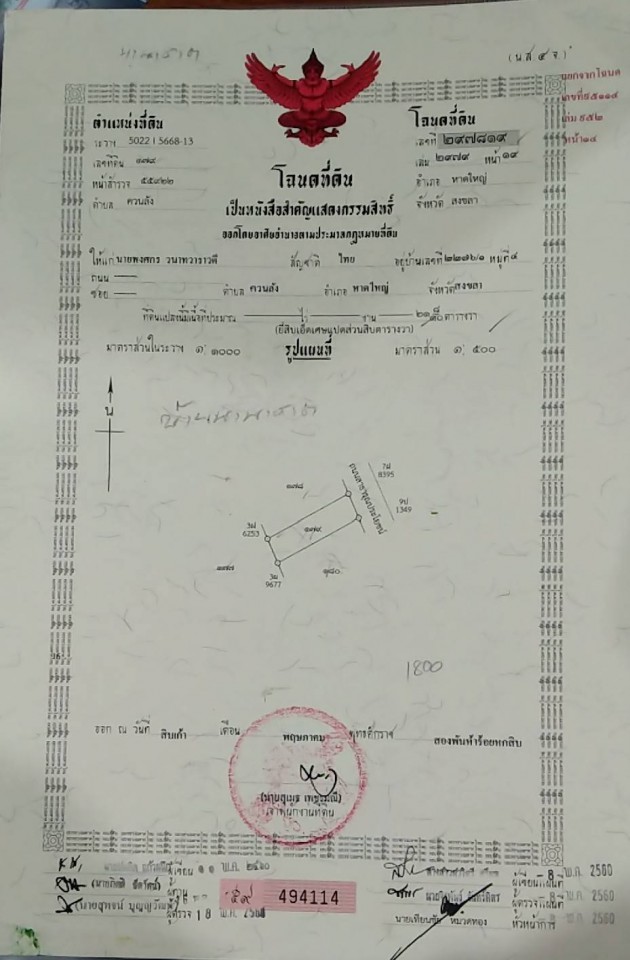 (น.ส. ๔ จ.)
แยกจากโฉนด
เลขที่ ๙๕๑๑๔
เล่ม ๙๕๒
หน้า ๑๔
ตำแหน่งที่ดิน
ระวาง 5022 I 5668-13
เลขที่ดิน ๑๗๙
หน้าสำรวจ ๕๕๙๒๒
ตำบล ควนลัง
โฉนดที่ดิน
เลขที่ ๒๙๗๘๑๙
เล่ม ๒๙๗๙ หน้า ๑๙
อำเภอ หาดใหญ่
จังหวัด สงขลา
โฉนดที่ดิน
เป็นหนังสือสำคัญแสดงกรรมสิทธิ์
ออกโดยอาศัยอำนาจตามประมวลกฎหมายที่ดิน
ให้แก่ นายพงศกร วนาทวาราวดี สัญชาติ ไทย อยู่บ้านเลขที่ ๒๒๗๖/๑ หมู่ที่ ๔
ถนน
ซอย ตำบล ควนลัง อำเภอ หาดใหญ่ จังหวัด สงขลา
ที่ดินแปลงนี้มีเนื้อที่ประมาณ ไร่ งาน ๒๑ ๘/๑๐ ตารางวา
(ยี่สิบเอ็ดเศษแปดส่วนสิบตารางวา)
มาตราส่วนในระวาง ๑:๑๐๐๐ รูปแผนที่ มาตราส่วน ๑:๕๐๐
น
๑๗๘
ถนนสาธารณประโยชน์
7ฝ
8395
9ป
1349
3ฝ
6253
๑๗๙
๑๗๗
3ฒ
9677
๑๘๐
1800
ออก ณ วันที่ สิบเก้า เดือน พฤษภาคม พุทธศักราช สองพันห้าร้อยหกสิบ
(นายสุเมธ เพ็ชรมณี)
เจ้าพนักงานที่ดิน
ผู้เขียน ๑๑ พ.ค. ๒๕๖๐
ผู้ทาน
ผู้ตรวจ 18 พ.ค. 2560
๕๙ 494114
ผู้เขียนแผนที่ - 8 พ.ค. 2560
ผู้ตรวจแผนที่ 8 พ.ค. 2560
นายเทียนชัย หมวดทอง หัวหน้าการ 8 พ.ค. 2560